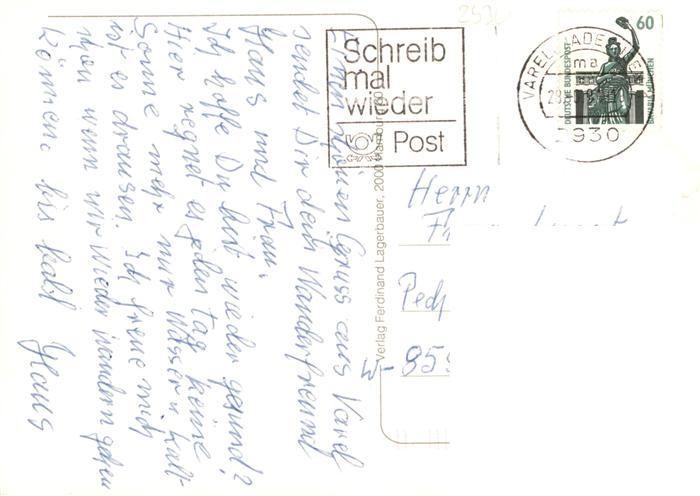 Einen schönen Gruss aus Varel
sendet Dir dein Wanderfreund
Haus und Frau.
Ich hoffe Du bist wieder gesund?
Hier regnet es jeden tag keine
Sonne mehr nur Wasser u. kalt
ist es drausen. Ich freue mich
schon wenn wir wieder wandern gehen
können. bis bald Haus
Verlag Ferdinand Lagerbauer, 2000 Hamburg
Schreib
mal
wieder
Post
60
DEUTSCHE BUNDESPOST
MÜNCHEN
VAREL
ma
2930
Herrn
W-